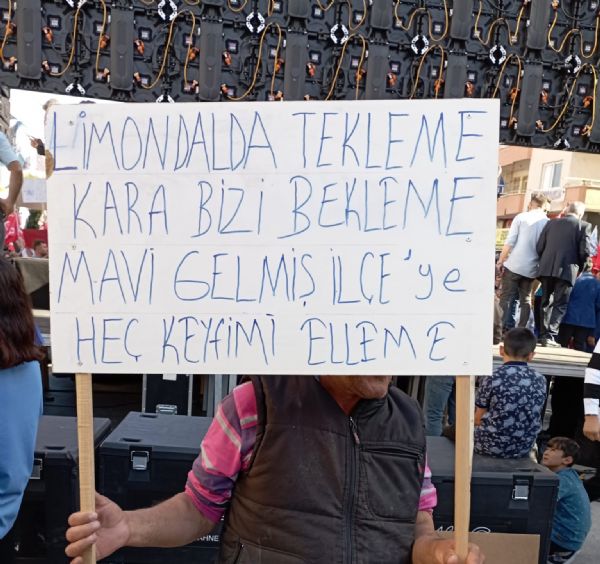 LİMONDALDA TEKLEME
KARA BİZİ BEKLEME
MAVİ GELMİŞ İLÇE'ye
HEÇ KEYFİMİ ELLEME